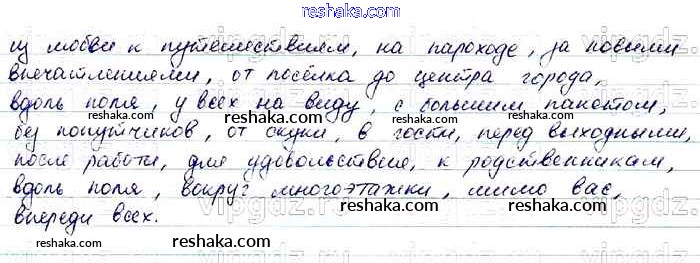 reshaka.com
из любви к путешествиям, на пароходе, за новыми
впечатлениями, от посёлка до центра города,
вдоль поля, у всех на виду, с большим пакетом,
без попутчиков, от скуки, в гости, перед выходными,
после работы, для удовольствия, к родственникам,
вдоль поля, вокруг многоэтажки, мимо вас,
впереди всех.
reshaka.com reshaka.com reshaka.com
reshaka.com reshaka.com reshaka.com
reshaka.com reshaka.com
vipgdz.ru vipgdz.ru vipgdz.ru